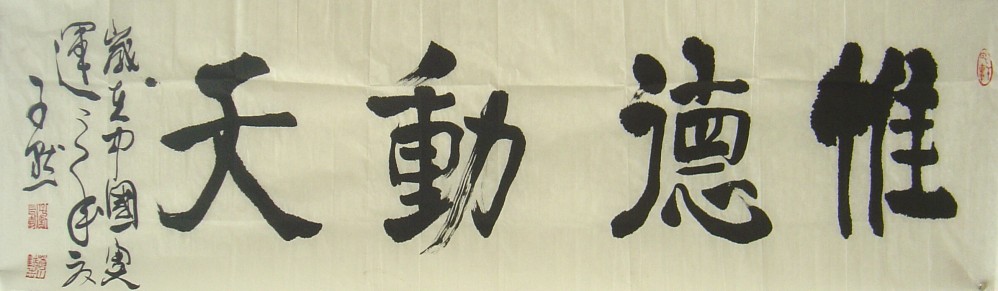 惟德動天
歲在中國奧
運之年夏
子然